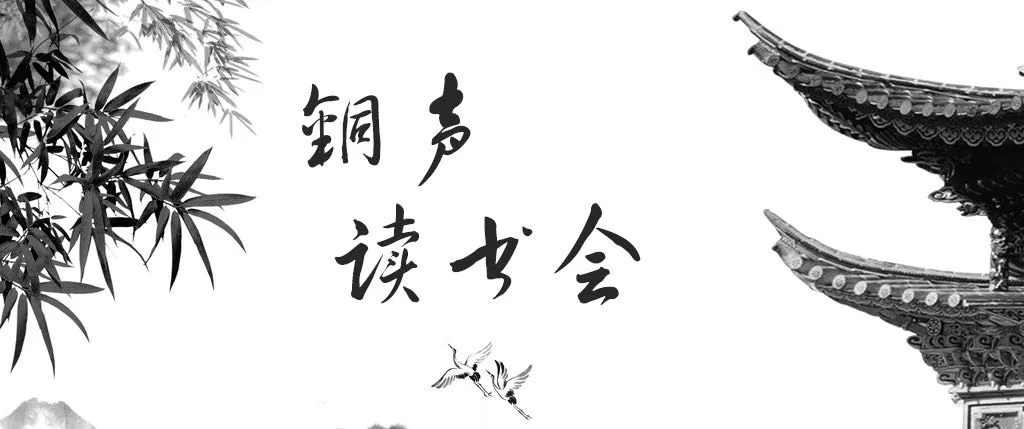 銅声
读书会